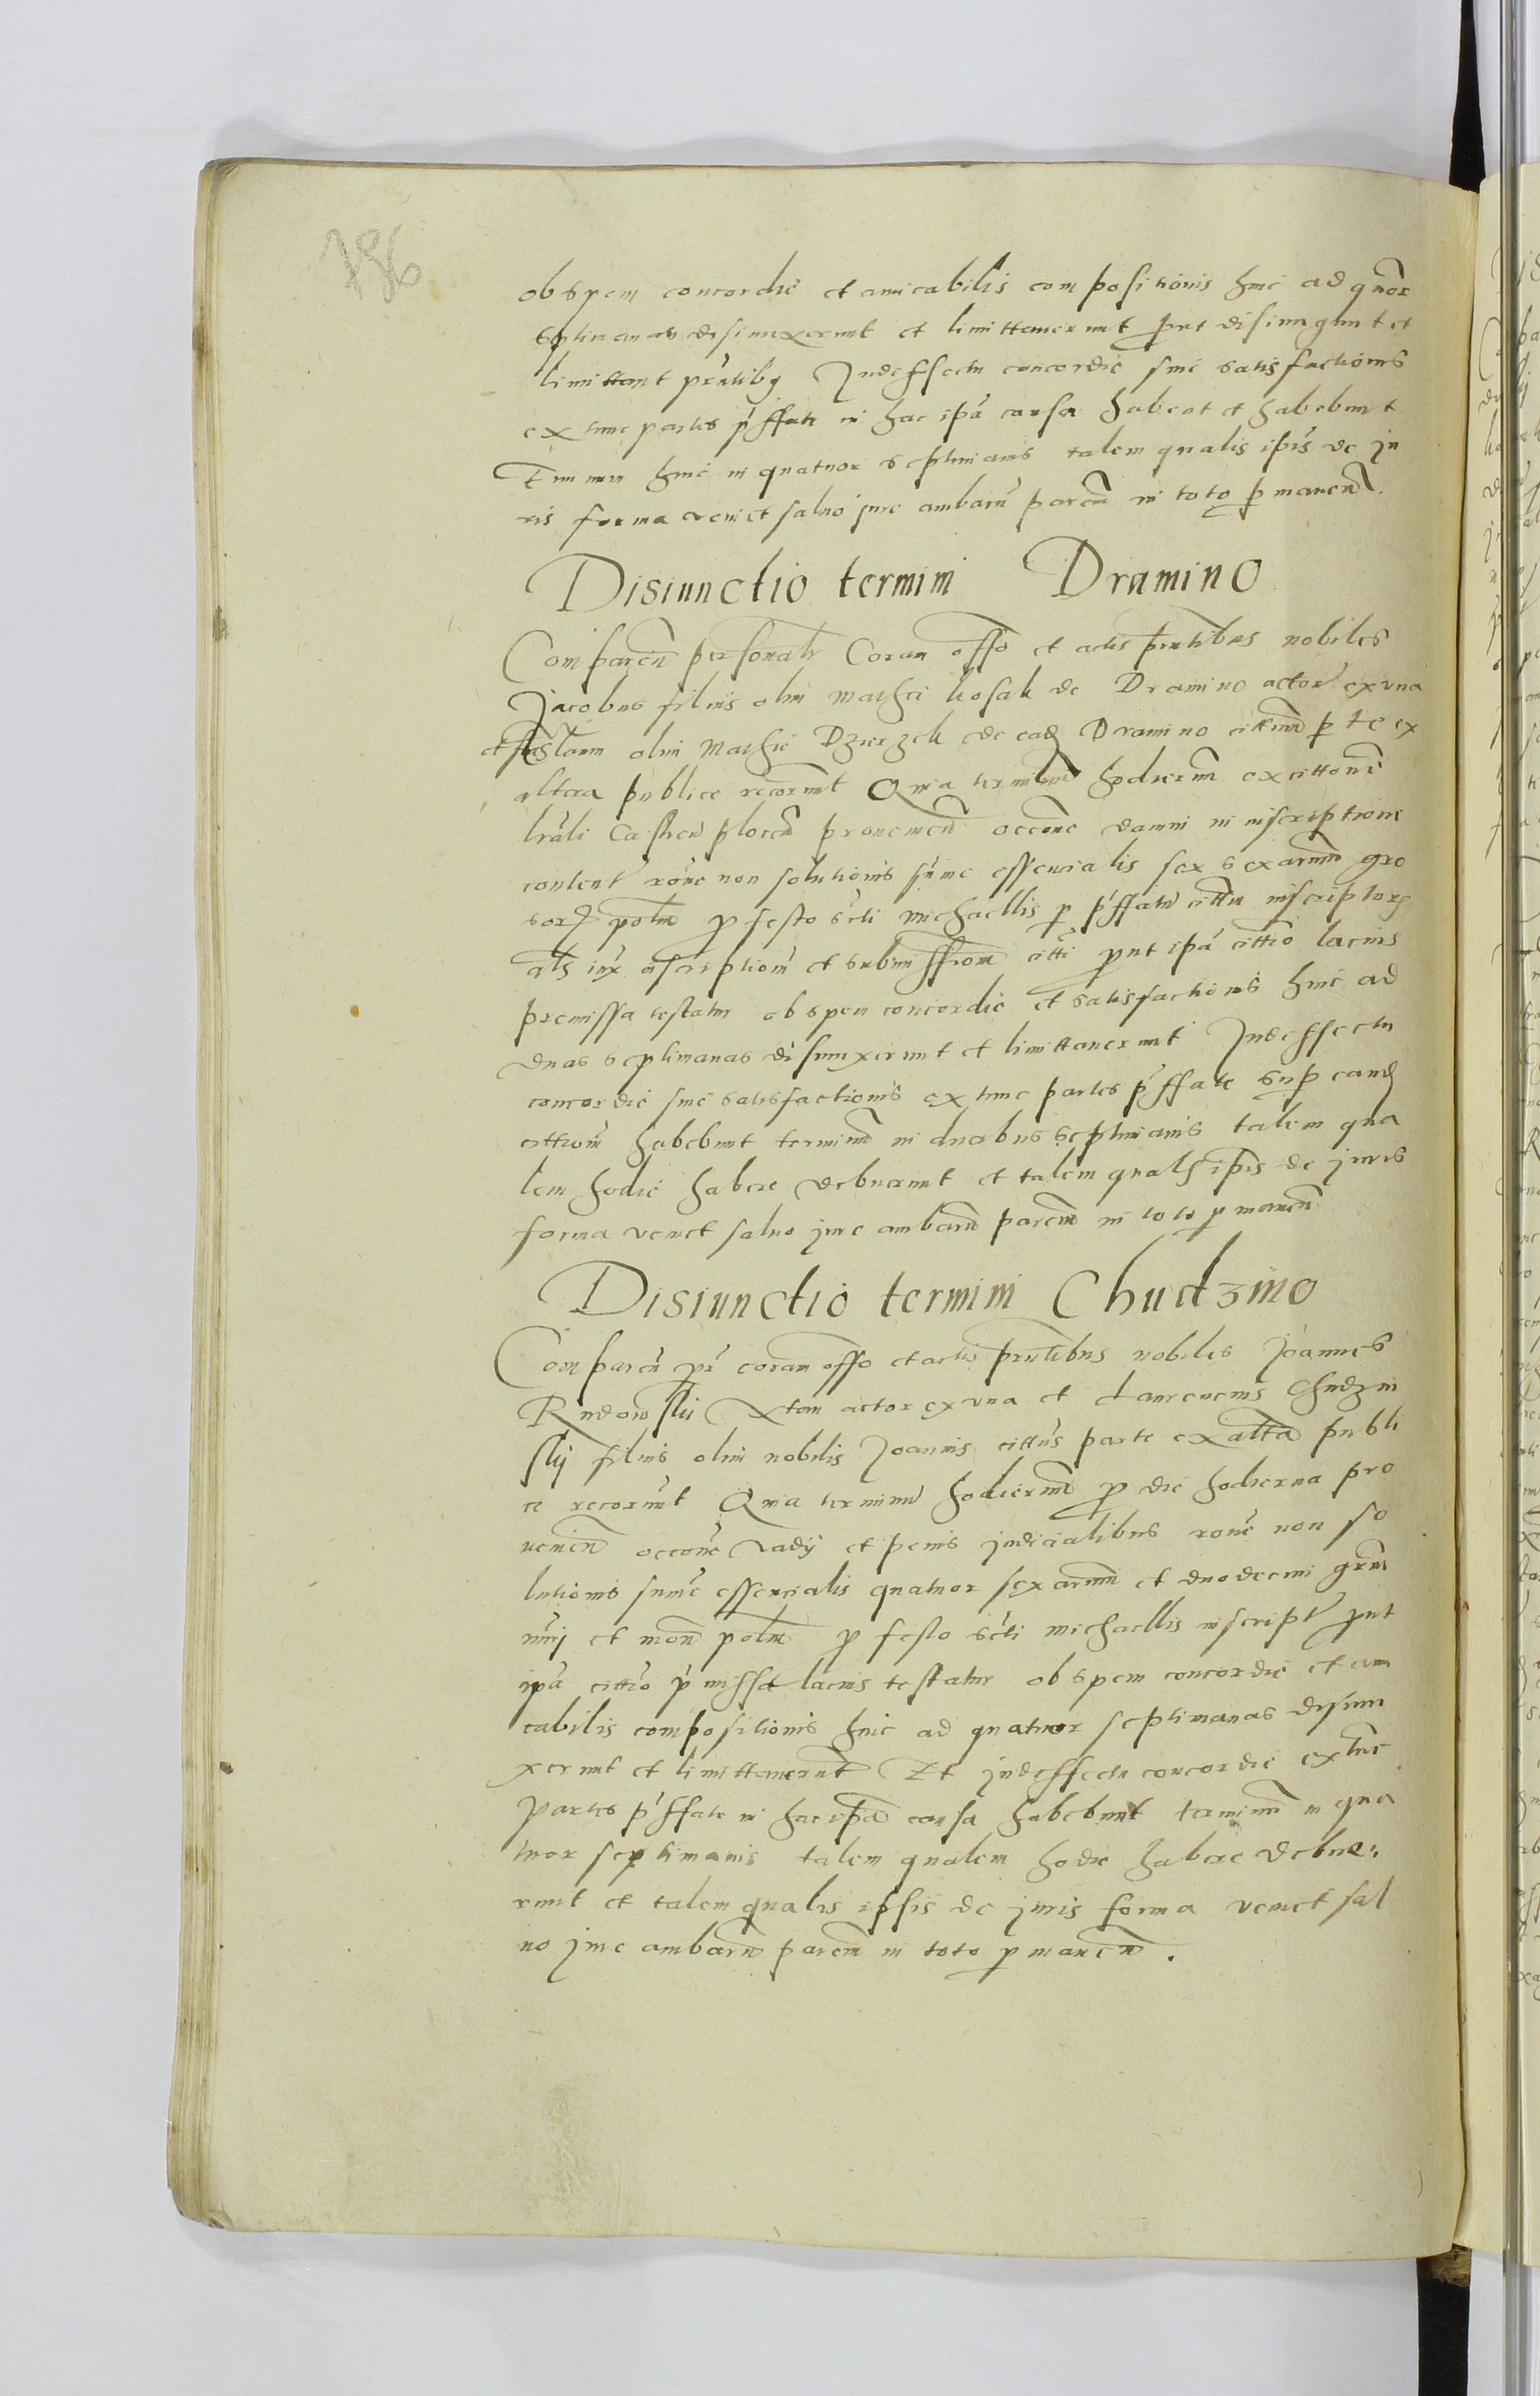 786
ob spem concordie et amicabilis compositionis hinc ad quor
sptimanas disiunxerunt et limittaverunt put disiungunt et
limittant pntibq Indeffectu concordie sine satisfactionis
extunc partes pffate in hac ipa causa habeat et habebunt
hinc in quatuor septimanis talem qualis ipis de ju
ris forma veniet salvo jure ambaru parcu in toto pmanen.
Disiunctio termini Dramino
Comparen personalr Coram offo et actis pntibus nobiles
Jacobus filius olim Mathei kosak de Dramino actor ex una
et olim Mathie Dzierzek de eade Dramino citum pte ex
altera publice recorunt Quia terminum hodiernu ex cittone
lrali Castren plocen provenien occone damni in inscriptione
content rone non solutionis sume essencialis sex sexarum gro
sor polm p festo scti Michaellis p pffatu cittu inscriptor
als inx inscription et submission citti put ipa cittio lacius
premissa testatur ob spem concordie et satisfactionis hinc ad
duas septimanas disiunxerunt et limittaverunt Indeffectu
concordie sine satisfactionis extunc partes pffate sup eand
cittion habebunt terminu in duabus septimanis talem qua
lem hodie habere debuerunt et talem qualis ipis de juris
forma veniet salvo jure ambaru parcium in toto pmanen
Disiunctio termini Chudzino
Comparen pr coram offo et actis pntibus nobiles Joannes
Rudowskii Xtan actor ex una et Laurencius Chudzin
skij filius olim nobilis Joannis cittus parte ex altra publi
ce recorunt Quia terminu hodiernu p die hodierna pro
venien occone vadij et penis judicialibus rone non so
lutionis sume essencialis quatuor sexarum et duodecim grm
numj et mon polm p festo scti Michaellis inscript put
ipa cittio pmissa lacius testatur ob spem concordie et ami
cabilis compositionis hinc ad quatuor septimanas disiun
xerunt et limittaverunt Et indeffectu concordie extunc
Partes pffate in hac ipa causa habebunt terminum in qua
tuor septimanis talem qualem hodie habere debue,
runt et talem qualis ipsis de juris forma veniet sal
vo jure ambaru parcm in toto pmanen.